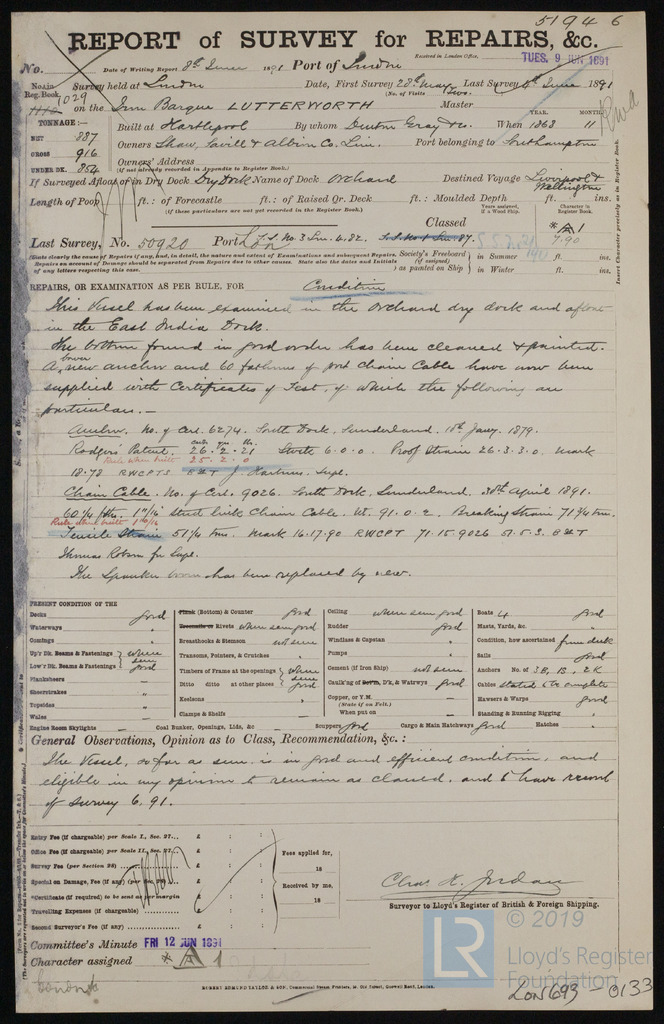 51946
REPORT of SURVEY for REPAIRS, &c.
Received in London Office, TUES. 9 JUN 1891
No. Date of Writing Report 8th June 1891 Port of London
No. in Reg. Book. Survey held at London Date, First Survey 28th May Last Survey 4th June 1891
(No. of Visits Two)
1029 on the Iron Barque LUTTERWORTH Master
TONNAGE:— YEAR. MONTH.
NET 887 Built at Hartlepool By whom Denton Gray & Co. When 1868 11
GROSS 916 Owners Shaw, Savill & Albion Co. Lim. Port belonging to Southampton
UNDER DK. 854 Owners' Address
(If not already recorded in Appendix to Register Book.)
If Surveyed Afloat or in Dry Dock Dry Dock Name of Dock Orchard Destined Voyage Liverpool & Wellington
Length of Poop ft.: of Forecastle ft.: of Raised Qr. Deck ft.: Moulded Depth ft. ins.
(If these particulars are not yet recorded in the Register Book.)
Years assigned, if a Wood Ship. Character in Register Book.
Classed A 1
Last Survey, No. 50920 Port Lon S.S. No 3 Lon 6.82. 7.90
Society's Freeboard (if assigned) as painted on Ship in Summer ft. ins.
in Winter ft. ins.
REPAIRS, OR EXAMINATION AS PER RULE, FOR Condition
This Vessel has been examined in the Orchard dry dock and afloat
in the East India Dock.
The bottom found in good order has been cleaned & painted.
A new bower anchor and 60 fathoms of port chain Cable have now been
supplied with Certificates of Test, of which the following are
particulars.—
Anchor. No. of Cert. 6274. South Dock, Sunderland. 18th Jany. 1879.
Rodgers Patent. 26.2.21 Stock 6.0.0. Proof Strain 26.3.3.0. Mark
Rule when built 25.2.0
18.78 RWCPTS J. Hartness. Supt.
Chain Cable. No. of Cert. 9026. South Dock, Sunderland. 30th April 1891.
60¼ fths. stud link Chain Cable. Wt. 91.0.2. Breaking Strain 71¾ tons.
Rule when built 1 10/16
Tensile Strain 51¼ tons. Mark 16.17.90 RWCPT 71.15.9026 51.5.3.
Thomas Robson for Supt.
The Spanker boom has been replaced by new.
PRESENT CONDITION OF THE
Decks good
Waterways "
Comings "
Up'r Dk. Beams & Fastenings where seen
Low'r Dk. Beams & Fastenings good
Planksheers —
Sheerstrakes "
Topsides "
Wales —
Engine Room Skylights —
Plank (Bottom) & Counter good
Treenails or Rivets where seen good
Breasthooks & Stemson not seen
Transoms, Pointers, & Crutches "
Timbers of Frame at the openings where seen
Ditto ditto at other places good
Keelsons "
Clamps & Shelfs —
Coal Bunker, Openings, Lids, &c —
Ceiling where seen good
Rudder good
Windlass & Capstan "
Pumps "
Cement (if Iron Ship) not seen
Caulk'ng of Bottom, D'k, & Waterw'ys good
Copper, or Y.M. —
(State if on Felt.)
When put on —
Scuppers good
Cargo & Main Hatchways good
Boats 4 good
Masts, Yards, &c. "
Condition, how ascertained from deck
Sails good
Anchors No. of 3B, 1S, 2K
Cables stated to be complete
Hawsers & Warps good
Standing & Running Rigging "
Hatches "
General Observations, Opinion as to Class, Recommendation, &c.:
The Vessel, so far as seen is in good and efficient condition, and
eligible in my opinion to remain as classed. and to have record
of survey 6.91.
Entry Fee (if chargeable) per Scale I., Sec. 27... £ : :
Office Fee (if chargeable) per Scale II., Sec. 27... £ : :
Survey Fee (per Section 28) £ : :
Special on Damage, Fee (if any) £ : :
*Certificate (if required) to be sent as per margin
Travelling Expenses (if chargeable) £ : :
Second Surveyor's Fee (if any) £ : :
Fees applied for, 18
Received by me, 18
Chas. H. Jordan
Surveyor to Lloyd's Register of British & Foreign Shipping.
Committee's Minute FRI 12 JUN 1891
Character assigned A 1
ROBERT EDMUND TAYLOR & SON, Commercial Steam Printers, 19, Old Street, Goswell Road, London.
© 2019
LR Lloyd's Register
Foundation
LON693-0133